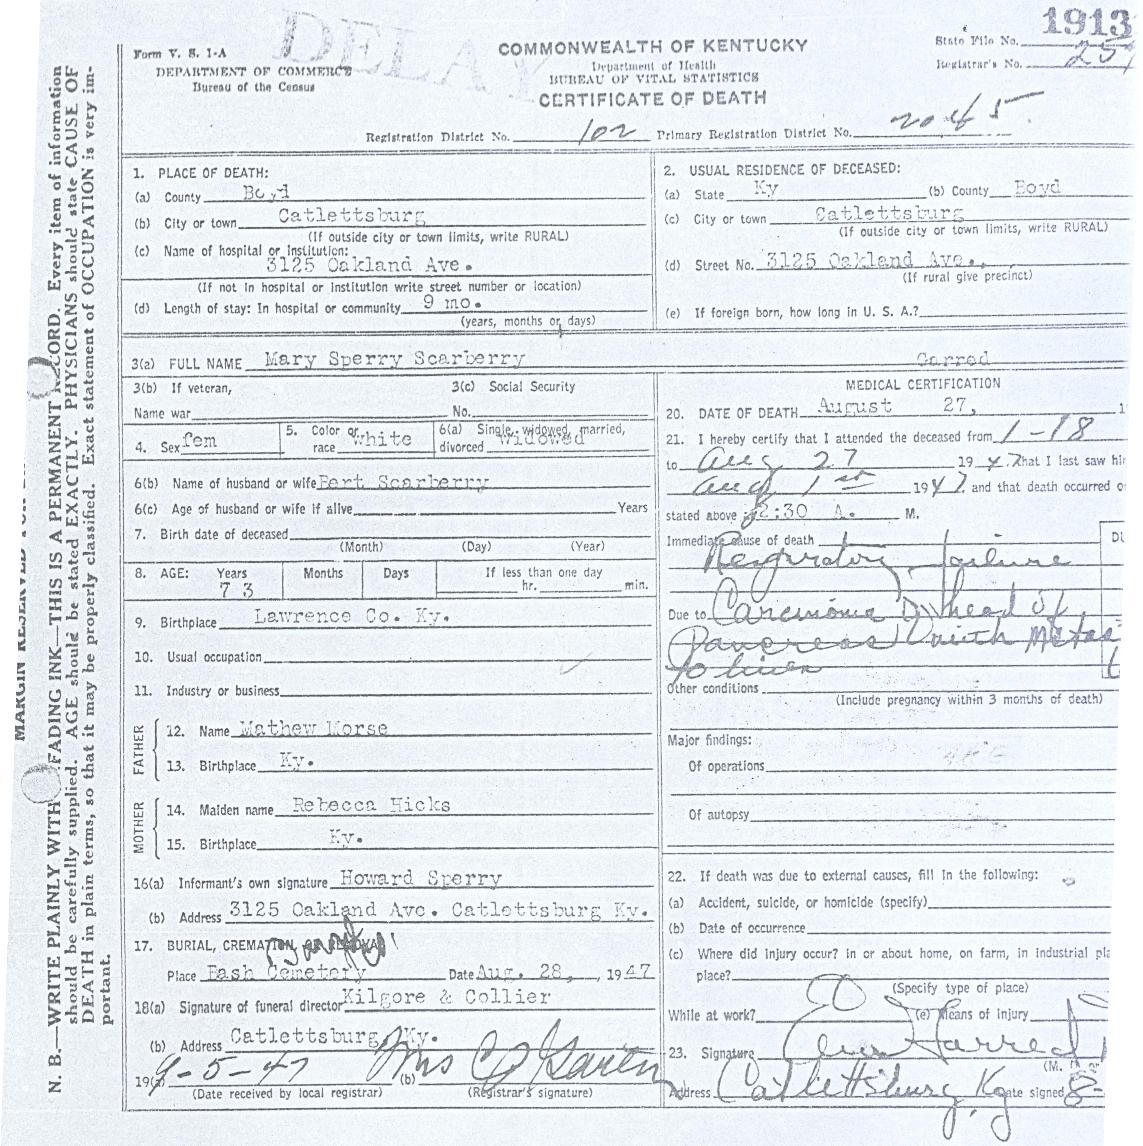 1913
DELAY
Form V. S. 1-A
DEPARTMENT OF COMMERCE
Bureau of the Census
COMMONWEALTH OF KENTUCKY
Department of Health
BUREAU OF VITAL STATISTICS
CERTIFICATE OF DEATH
State File No.
Registrar's No. 251
Registration District No. 102 Primary Registration District No. 2045
1. PLACE OF DEATH:
(a) County Boyd
(b) City or town Catlettsburg
(If outside city or town limits, write RURAL)
(c) Name of hospital or institution:
3125 Oakland Ave.
(If not in hospital or institution write street number or location)
(d) Length of stay: In hospital or community 9 mo.
(years, months or days)
2. USUAL RESIDENCE OF DECEASED:
(a) State Ky (b) County Boyd
(c) City or town Catlettsburg
(If outside city or town limits, write RURAL)
(d) Street No. 3125 Oakland Ave.,
(If rural give precinct)
(e) If foreign born, how long in U. S. A.?
3(a) FULL NAME Mary Sperry Scarberry Garred
3(b) If veteran, 3(c) Social Security
Name war No.
4. Sex fem 5. Color or race White 6(a) Single, widowed, married, divorced Widowed
6(b) Name of husband or wife Bert Scarberry
6(c) Age of husband or wife if alive Years
7. Birth date of deceased
(Month) (Day) (Year)
8. AGE: Years Months Days If less than one day
73 hr. min.
9. Birthplace Lawrence Co. Ky.
10. Usual occupation
11. Industry or business
FATHER
12. Name Mathew Morse
13. Birthplace Ky.
MOTHER
14. Maiden name Rebecca Hicks
15. Birthplace Ky.
16(a) Informant's own signature Howard Sperry
(b) Address 3125 Oakland Ave. Catlettsburg Ky.
17. BURIAL, CREMATION, OR REMOVAL
Place Bash Cemetery Date Aug. 28, 1947
18(a) Signature of funeral director Kilgore & Collier
(b) Address Catlettsburg, Ky.
19(a) 9-5-47 (b) Mrs
(Date received by local registrar) (Registrar's signature)
MEDICAL CERTIFICATION
20. DATE OF DEATH August 27, 1
21. I hereby certify that I attended the deceased from 1-18
to Aug 27 1947. that I last saw hi
Aug 1st 1947, and that death occurred o
stated above 2:30 A. M.
Immediate cause of death
Respiratory failure
Due to Carcinoma of head of
Pancreas with Metas
to liver
Other conditions
(Include pregnancy within 3 months of death)
Major findings:
Of operations
Of autopsy
22. If death was due to external causes, fill in the following:
(a) Accident, suicide, or homicide (specify)
(b) Date of occurrence
(c) Where did injury occur? in or about home, on farm, in industrial pla
place?
(Specify type of place)
While at work? (e) Means of injury
23. Signature Garred
(M.
Address Catlettsburg Ky Date signed 8-
N. B.—WRITE PLAINLY WITH FADING INK—THIS IS A PERMANENT RECORD. Every item of information
should be carefully supplied. AGE should be stated EXACTLY. PHYSICIANS should state CAUSE OF
DEATH in plain terms, so that it may be properly classified. Exact statement of OCCUPATION is very im-
portant.
MARGIN RESERVED